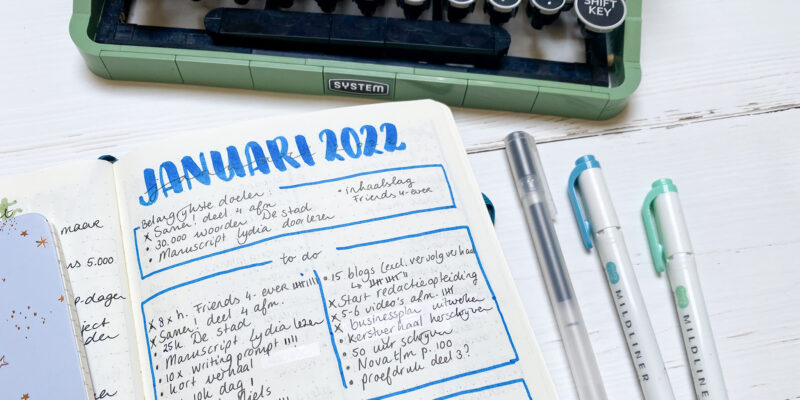 SHIFT
KEY
SYSTEM
JANUARI 2022
Belangrijkste doelen:
x Saner! deel 4 afm
• 30.000 woorden De stad
• Manuscript Lydia doorlezen
• inhaalslag
Friends 4-ever
to do
x 8 x h. Friends 4-ever
x Saner! deel 4 afm.
x 25k De stad
• Manuscript Lydia lezen
• 10x writing prompt IIII
• kort verhaal
10k dag!
• 15 blogs (excl. vervolgverhaal
x Start redactieopleiding
x 5-6 video's afm.
x businessplan uitwerken
• Kerstverhaal herschrijven
• 50 uur schrijven
• Nova t/m p. 100
• proefdruk deel 3?
maar
5.000
p.dagen
MILDLINER
MILDLINER